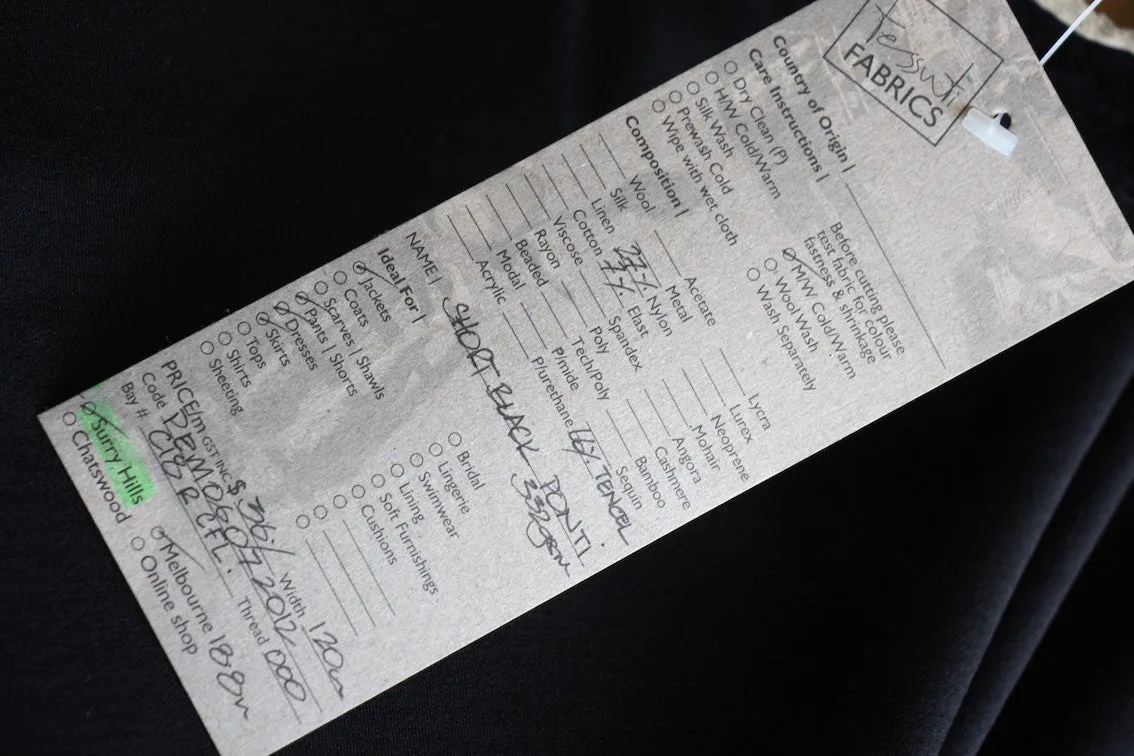 Tessuti
FABRICS
Country of Origin |
Care Instructions |
Dry Clean (P)
H/W Cold/Warm
Silk Wash
Prewash Cold
Wipe with wet cloth
Before cutting please
test fabric for colour
fastness & shrinkage
M/W Cold/Warm
Wool Wash
Wash Separately
Composition |
Wool
Silk
Linen
Cotton
Viscose
Rayon
Beaded
Modal
Acrylic
Acetate
Metal
27% Nylon
7% Elast
Spandex
Poly
Tech/Poly
P/mide
P/urethane
Lycra
Lurex
Neoprene
Mohair
Angora
Cashmere
Bamboo
Sequin
66% TENCEL
NAME | SHORT BLACK PONTI.
332gsm
Ideal For |
Jackets
Coats
Scarves | Shawls
Pants | Shorts
Dresses
Skirts
Tops
Shirts
Sheeting
Bridal
Lingerie
Swimwear
Lining
Soft Furnishings
Cushions
PRICE/m GST INC $ 36/ Width 120cm
Code Thread 000
Bay #
Surry Hills
Chatswood
Melbourne 18.8m
Online shop